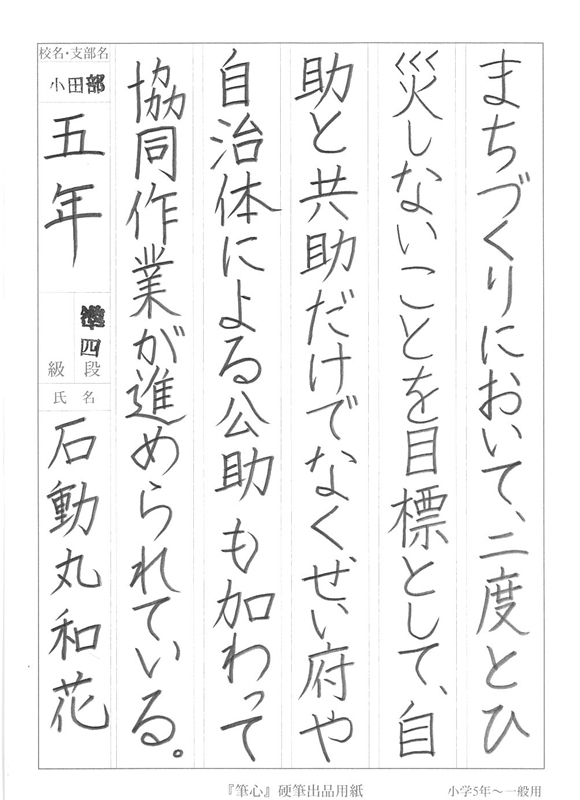 まちづくりにおいて、二度とひ
災しないことを目標として、自
助と共助だけでなく、ぜい府や
自治体による公助も加わって
協同作業が進められている。
校名・支部名
小田部
五年
準四
級 段
氏名
石動丸和花
『筆心』硬筆出品用紙
小学5年～一般用